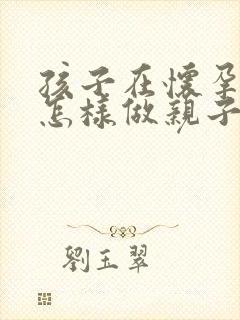 孩子在懷孕
怎樣做親子
劉玉翠